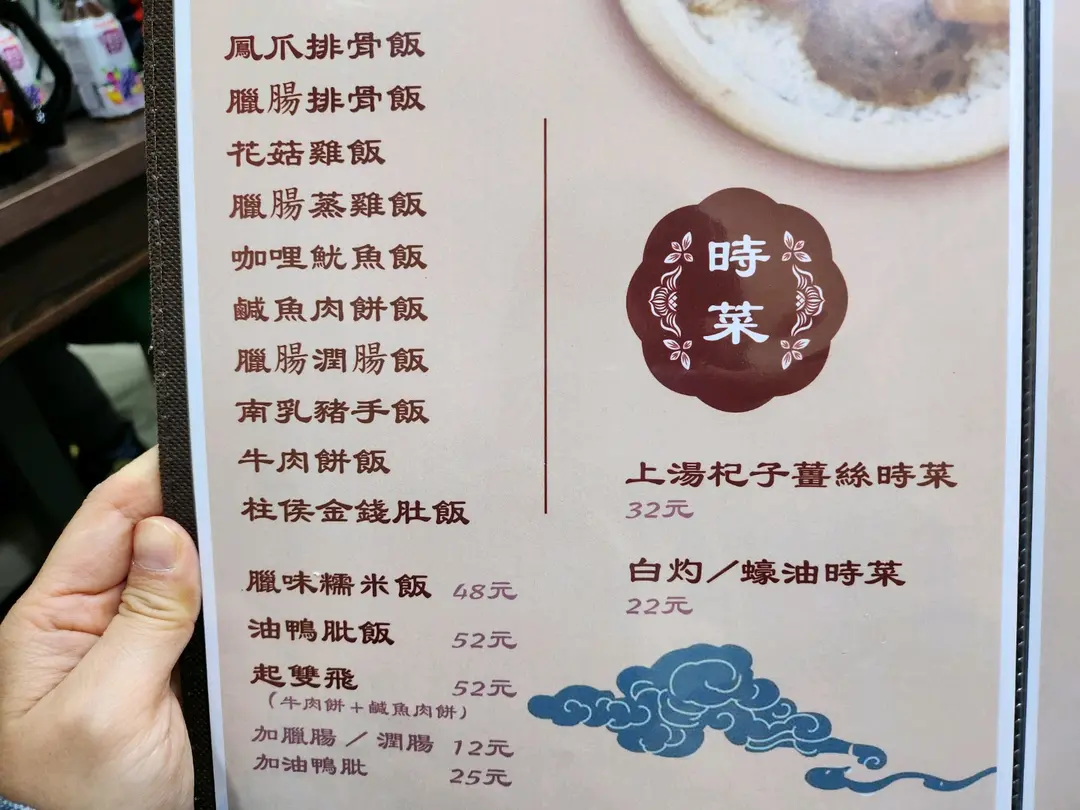 鳳爪排骨飯
臘腸排骨飯
花菇雞飯
臘腸蒸雞飯
咖哩魷魚飯
鹹魚肉餅飯
臘腸潤腸飯
南乳豬手飯
牛肉餅飯
柱侯金錢肚飯
臘味糯米飯 48元
油鴨肶飯 52元
起雙飛 52元
（牛肉餅＋鹹魚肉餅）
加臘腸／潤腸 12元
加油鴨肶 25元
時
菜
上湯杞子薑絲時菜
32元
白灼／蠔油時菜
22元